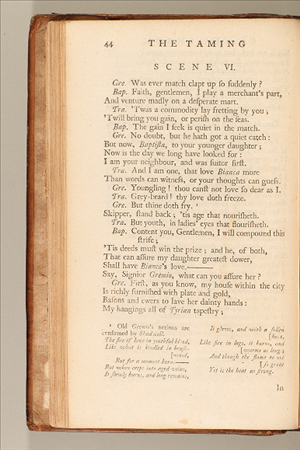 44 THE TAMING
SCENE VI.
Gre. Was ever match clapt up so suddenly ?
Bap. Faith, gentlemen, I play a merchant's part,
And venture madly on a desperate mart.
Tra. 'Twas a commodity lay fretting by you ;
'Twill bring you gain, or perish on the seas.
Bap. The gain I seek is quiet in the match.
Gre. No doubt, but he hath got a quiet catch :
But now, Baptista, to your younger daughter ;
Now is the day we long have looked for :
I am your neighbour, and was suitor first.
Tra. And I am one, that love Bianca more
Than words can witness, or your thoughts can guess.
Gre. Youngling ! thou canst not love so dear as I.
Tra. Grey-beard ! thy love doth freeze.
Gre. But thine doth fry. ¹
Skipper, stand back ; 'tis age that nourisheth.
Tra. But youth, in ladies' eyes that flourisheth.
Bap. Content you, Gentlemen, I will compound this
strife ;
'Tis deeds must win the prize ; and he, of both,
That can assure my daughter greatest dower,
Shall have Bianca's love.———
Say, Signior Gremio, what can you assure her ?
Gre. First, as you know, my house within the city
Is richly furnished with plate and gold,
Basons and ewers to lave her dainty hands :
My hangings all of Tyrian tapestry ;
¹ Old Gremio's notions are
confirmed by Shadwell.
The fire of love in youthful blood,
Like what is kindled in brush-
[wood,
But for a moment burns———
But when crept into aged veins,
It slowly burns, and long remains,
It glows, and with a sullen
[heat,
Like fire in logs, it burns, and
[warms us long ;
And though the flame be not
[so great
Yet is the heat as strong.
In